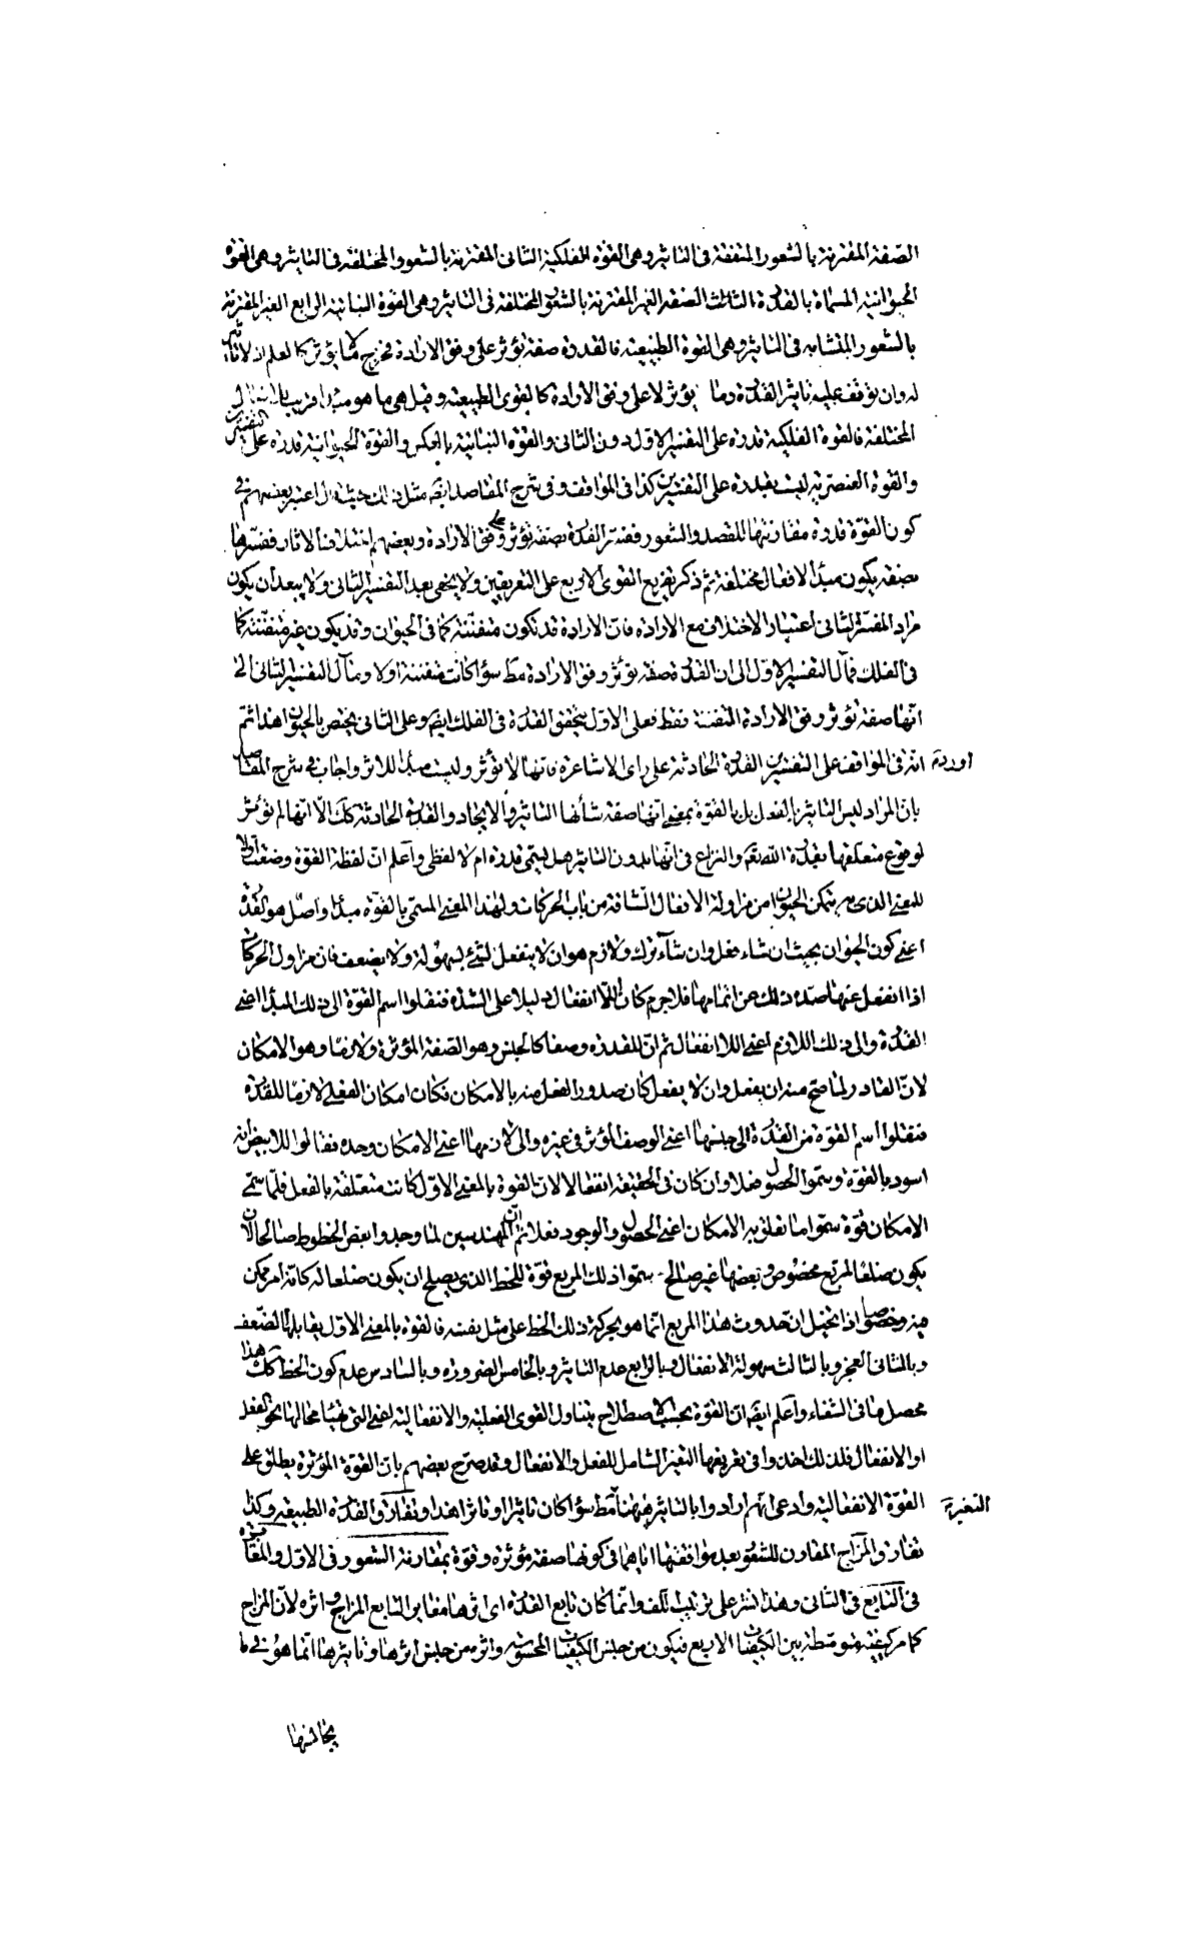 الصفة المقترنة بالشعور المتفقة فى التاثير وهى القوة الفلكية الثانى المقترنة بالشعور المختلفة فى التاثير وهى القوة
الحيوانية المسماة بالقدرة الثالث الصفة الغير المقترنة بالشعور المختلفة فى التاثير وهى القوة النباتية الرابع الغير المقترنة
بالشعور المتشابه فى التاثير وهى القوة الطبيعية فالقدرة صفة تؤثر على وفق الارادة فخرج ما لا يؤثر كالعلم اذ لا تاثير
له وان توقف عليه تاثير القدرة وما يؤثر لا على وفق الارادة كالقوى الطبيعية وقيل هى ما هو مبدا قريب للافعال
المختلفة فالقوة الفلكية قدرة على التفسير الاول دون الثانى والقوة النباتية بالعكس والقوة الحيوانية قدرة على التفسيرين
والقوة العنصرية ليست بقدرة على التفسيرين كذا فى المواقف وفى شرح المقاصد ايضا مثل ذلك حيث قال اعتبر بعضهم فى
كون القوة قدرة مقارنتها للقصد والشعور ففسر القدرة بصفة تؤثر على وفق الارادة وبعضهم اختلاف الاثار ففسرها
بصفة يكون مبدأ لافعال مختلفة ثم ذكر تفريع القوى الاربع على التعريفين ولا يخفى بعد التفسير الثانى ولا يبعد ان يكون
مراد المفسر الثانى اعتبار الاختلاف مع الارادة فان الارادة قد تكون متفننة كما فى الحيوان وقد يكون غير متفننة كما
فى الفلك فمآل التفسير الاول الى ان القدرة صفة تؤثر وفق الارادة مط سواء كانت متفننة او لا ومآل التفسير الثانى الى
انها صفة تؤثر وفق الارادة المتفننة فقط فعلى الاول يتحقق القدرة فى الفلك ايضا وعلى الثانى يختص بالحيوان هذا ثم
انه فى المواقف على التفسيرين القدرة الحادثة على راى الاشاعرة فانها لا تؤثر وليست مبدأ للاثر واجاب فى شرح المقاصد
اورد
بان المراد ليس التاثير بالفعل بل بالقوة بمعنى انها صفة شأنها التاثير والايجاد والقدرة الحادثة كك الا انها لم تؤثر
لوقوع متعلقها بقدرة الله تعالى والنزاع فى انها بدون التاثير هل يسمى قدرة ام لا لفظى واعلم ان لفظة القوة وضعت اولا
للمعنى الذى به يتمكن الحيوان من مزاولة الافعال الشاقة من باب الحركات ولهذا المعنى المسمى بالقوة مبدأ واصل هو القدرة
اعنى كون الحيوان بحيث ان شاء فعل وان شاء ترك ولازم هو ان لا ينفعل لشئ بسهولة ولا يضعف فان مزاول الحركات
اذا انفعل عنها صده ذلك عن اتمامها فلاجرم كان اللا انفعال دليلا على الشدة فنقلوا اسم القوة الى ذلك المبدأ اعنى
القدرة والى ذلك اللازم اعنى اللا انفعال ثم ان للقدرة وصفا كالجنس وهو الصفة المؤثرة ولازما وهو الامكان
لان القادر لما صح منه ان يفعل وان لا يفعل كان صدور الفعل منه بالامكان فكان امكان الفعل لازما للقدرة
فنقلوا اسم القوة من القدرة الى جنسها اعنى الوصف المؤثر فى غيره والى لازمها اعنى الامكان وحده فقالوا للابيض انه
اسود بالقوة وسموا الحصول فعلا وان كان فى الحقيقة انفعالا لان القوة بالمعنى الاول كانت متعلقة بالفعل فلما سمى
الامكان قوة سموا ما تعلق به الامكان اعنى الحصول والوجود فعلا ثم ان المهندسين لما وجدوا بعض الخطوط صالحا لان
يكون ضلعا لمربع مخصوص وبعضها غير صالح سموا ذلك المربع قوة للخط الذى يصلح ان يكون ضلعا له كانه امر ممكن
فيه وخصوصا اذا تخيل ان حدوث هذا المربع انما هو بحركة ذلك الخط على مثل نفسه فالقوة بالمعنى الاول يقابلها الضعف
وبالثانى العجز وبالثالث سهولة الانفعال وبالرابع عدم التاثير وبالخامس الضرورة وبالسادس عدم كون الخط كك هذا
محصل ما فى الشفاء واعلم ايضا ان القوة بحسب الاصطلاح يتناول القوى الفعلية والانفعالية اعنى التى تهيئ محالها نحو الفعل
او الانفعال فلذلك اخذوا فى تعريفها التغير الشامل للفعل والانفعال وقد صرح بعضهم بان القوة المؤثرة يطلق على
القوة الانفعالية وادعى انهم ارادوا بالتاثير ههنا مط سواء كان تاثيرا او تاثرا هذا وتفارق القدرة الطبيعة وكذا
التغيرية
تفارق المزاج المقارن للشعور بعد موافقتها اياهما فى كونها صفة مؤثرة وقوة بمقارنة الشعور فى الاول والمغايرة
فى التابع فى الثانى وهذا نشر على ترتيب اللف وانما كان تابع القدرة اى اثرها مغاير التابع المزاج واثره لان المزاج
كما مر كيفية متوسطة بين الكيفيات الاربع فيكون من جنس الكيفيات المحسوسة واثره من جنس اثرها وتاثيرها انما هو فى ما
يجانسها